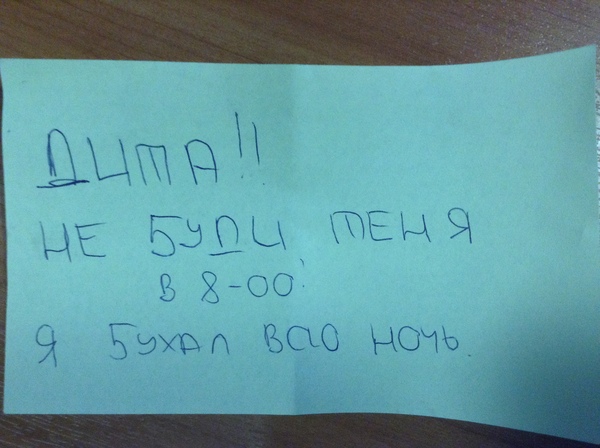 ДИМА!!
НЕ БУДИ МЕНЯ
В 8-00!
Я БУХАЛ ВСЮ НОЧЬ.